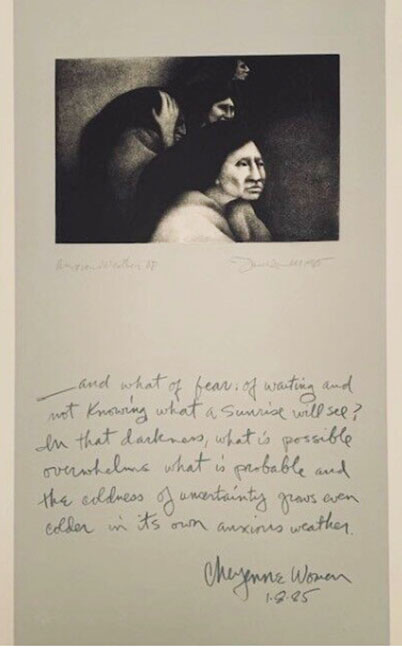 Anxious Weather
—and what of fear: of waiting and
not Knowing what a Sunrise will see?
In that darkness, what is possible
overwhelms what is probable and
the coldness of uncertainty grows even
colder in its own anxious weather.
Cheyenne Woman
1·8·85